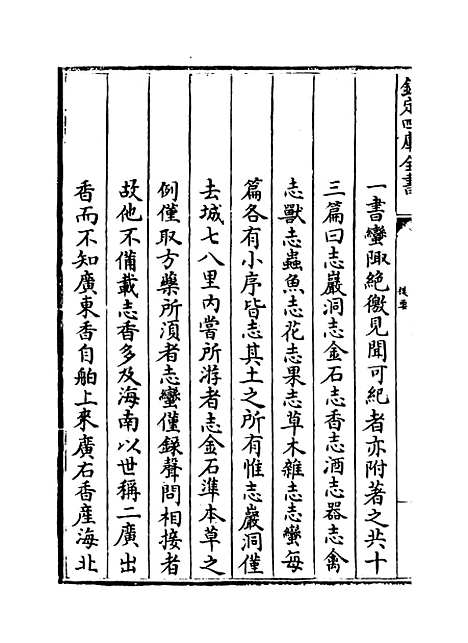 欽定四庫全書
提要
一書蠻陬絶徼見聞可紀者亦附著之共十
三篇曰志巖洞志金石志香志酒志器志禽
志獸志蟲魚志花志果志草木雜志志蠻每
篇各有小序皆志其土之所有惟志巖洞僅
去城七八里内嘗所游者志金石準本草之
例僅取方藥所湏者志蠻僅録聲問相接者
故他不備載志香多及海南以世稱二廣出
香而不知廣東香自舶上來廣右香産海北